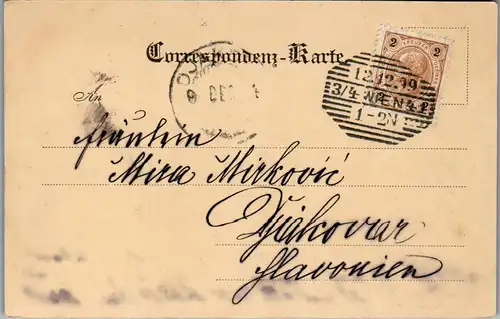 Correspondenz-Karte
2 KREUZER 2
12.12.99
3/4 WIEN 4 1
1-2N
An
Fräulein
Mira Mirković
Djakovar
Slavonien